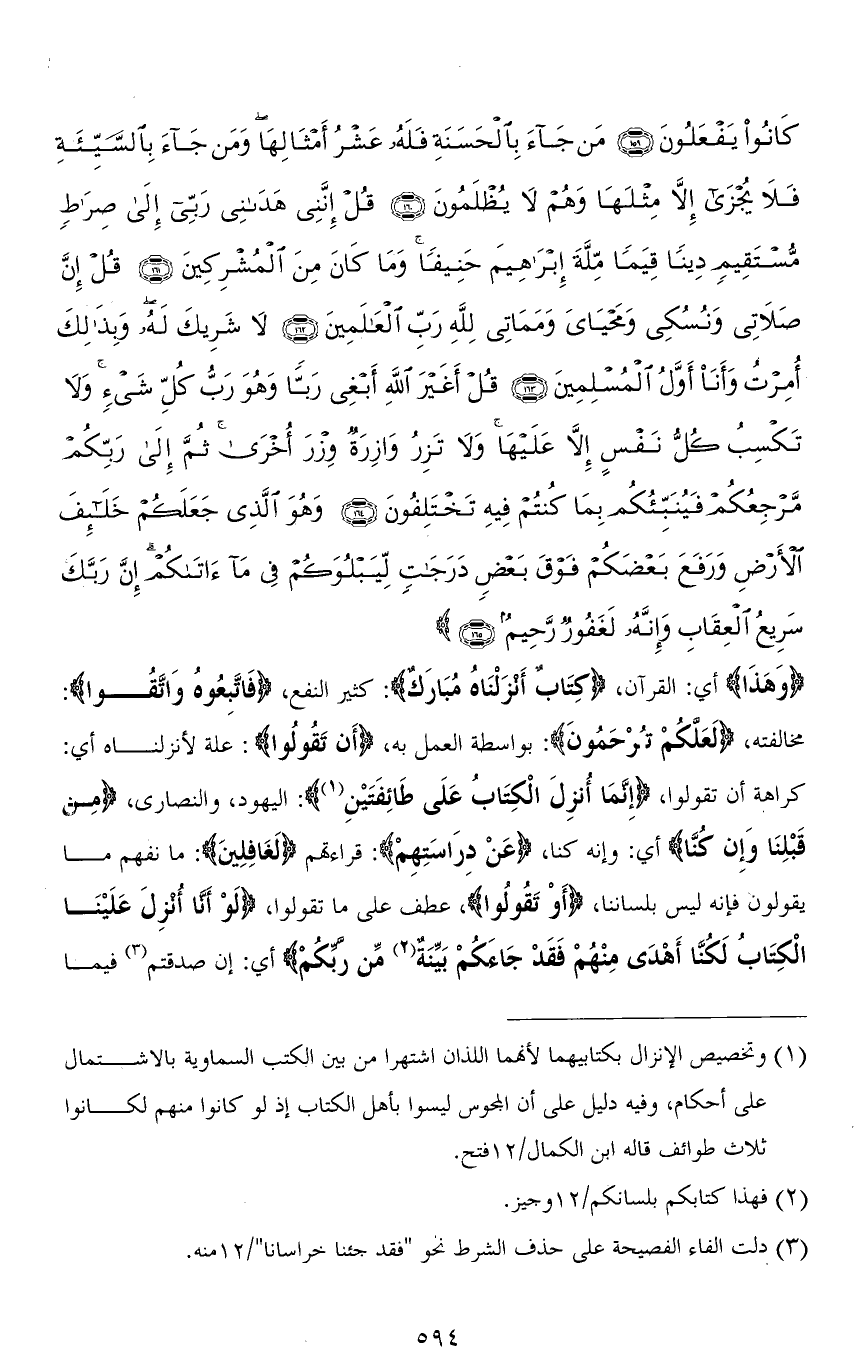 كَانُوا۟ يَفْعَلُونَ ١٥٩ مَن جَآءَ بِٱلْحَسَنَةِ فَلَهُۥ عَشْرُ أَمْثَالِهَا ۖ وَمَن جَآءَ بِٱلسَّيِّئَةِ
فَلَا يُجْزَىٰٓ إِلَّا مِثْلَهَا وَهُمْ لَا يُظْلَمُونَ ١٦٠ قُلْ إِنَّنِى هَدَىٰنِى رَبِّىٓ إِلَىٰ صِرَٰطٍ
مُّسْتَقِيمٍ دِينًا قِيَمًا مِّلَّةَ إِبْرَٰهِيمَ حَنِيفًا ۚ وَمَا كَانَ مِنَ ٱلْمُشْرِكِينَ ١٦١ قُلْ إِنَّ
صَلَاتِى وَنُسُكِى وَمَحْيَاىَ وَمَمَاتِى لِلَّهِ رَبِّ ٱلْعَٰلَمِينَ ١٦٢ لَا شَرِيكَ لَهُۥ ۖ وَبِذَٰلِكَ
أُمِرْتُ وَأَنَا۠ أَوَّلُ ٱلْمُسْلِمِينَ ١٦٣ قُلْ أَغَيْرَ ٱللَّهِ أَبْغِى رَبًّا وَهُوَ رَبُّ كُلِّ شَىْءٍ ۚ وَلَا
تَكْسِبُ كُلُّ نَفْسٍ إِلَّا عَلَيْهَا ۚ وَلَا تَزِرُ وَازِرَةٌ وِزْرَ أُخْرَىٰ ۚ ثُمَّ إِلَىٰ رَبِّكُم
مَّرْجِعُكُمْ فَيُنَبِّئُكُم بِمَا كُنتُمْ فِيهِ تَخْتَلِفُونَ ١٦٤ وَهُوَ ٱلَّذِى جَعَلَكُمْ خَلَٰٓئِفَ
ٱلْأَرْضِ وَرَفَعَ بَعْضَكُمْ فَوْقَ بَعْضٍ دَرَجَٰتٍ لِّيَبْلُوَكُمْ فِى مَآ ءَاتَىٰكُمْ ۗ إِنَّ رَبَّكَ
سَرِيعُ ٱلْعِقَابِ وَإِنَّهُۥ لَغَفُورٌ رَّحِيمٌۢ ١٦٥ ﴾
﴿وَهَذَا﴾ أي: القرآن، ﴿كِتَابٌ أَنْزَلْنَاهُ مُبَارَكٌ﴾: كثير النفع، ﴿فَاتَّبِعُوهُ وَاتَّقُوا﴾:
مخالفته، ﴿لَعَلَّكُمْ تُرْحَمُونَ﴾: بواسطة العمل به، ﴿أَن تَقُولُوا﴾: علة لأنزلناه أي:
كراهة أن تقولوا، ﴿إِنَّمَا أُنزِلَ الْكِتَابُ عَلَى طَائِفَتَيْنِ(١)﴾: اليهود، والنصارى، ﴿مِن
قَبْلِنَا وَإِن كُنَّا﴾ أي: وإنه كنا، ﴿عَنْ دِرَاسَتِهِمْ﴾: قراءتهم ﴿لَغَافِلِينَ﴾: ما نفهم ما
يقولون فإنه ليس بلساننا، ﴿أَوْ تَقُولُوا﴾، عطف على ما تقولوا، ﴿لَوْ أَنَّا أُنْزِلَ عَلَيْنَا
الْكِتَابُ لَكُنَّا أَهْدَى مِنْهُمْ فَقَدْ جَاءَكُمْ بَيِّنَةٌ(٢) مِّن رَّبِّكُمْ﴾ أي: إن صدقتم(٣) فيما
(١) وتخصيص الإنزال بكتابيهما لأنهما اللذان اشتهرا من بين الكتب السماوية بالاشتمال
على أحكام، وفيه دليل على أن المجوس ليسوا بأهل الكتاب إذ لو كانوا منهم لكانوا
ثلاث طوائف قاله ابن الكمال/١٢فتح.
(٢) فهذا كتابكم بلسانكم/١٢وجيز.
(٣) دلت الفاء الفصيحة على حذف الشرط نحو "فقد جئنا خراسانا"/١٢منه.
٥٩٤